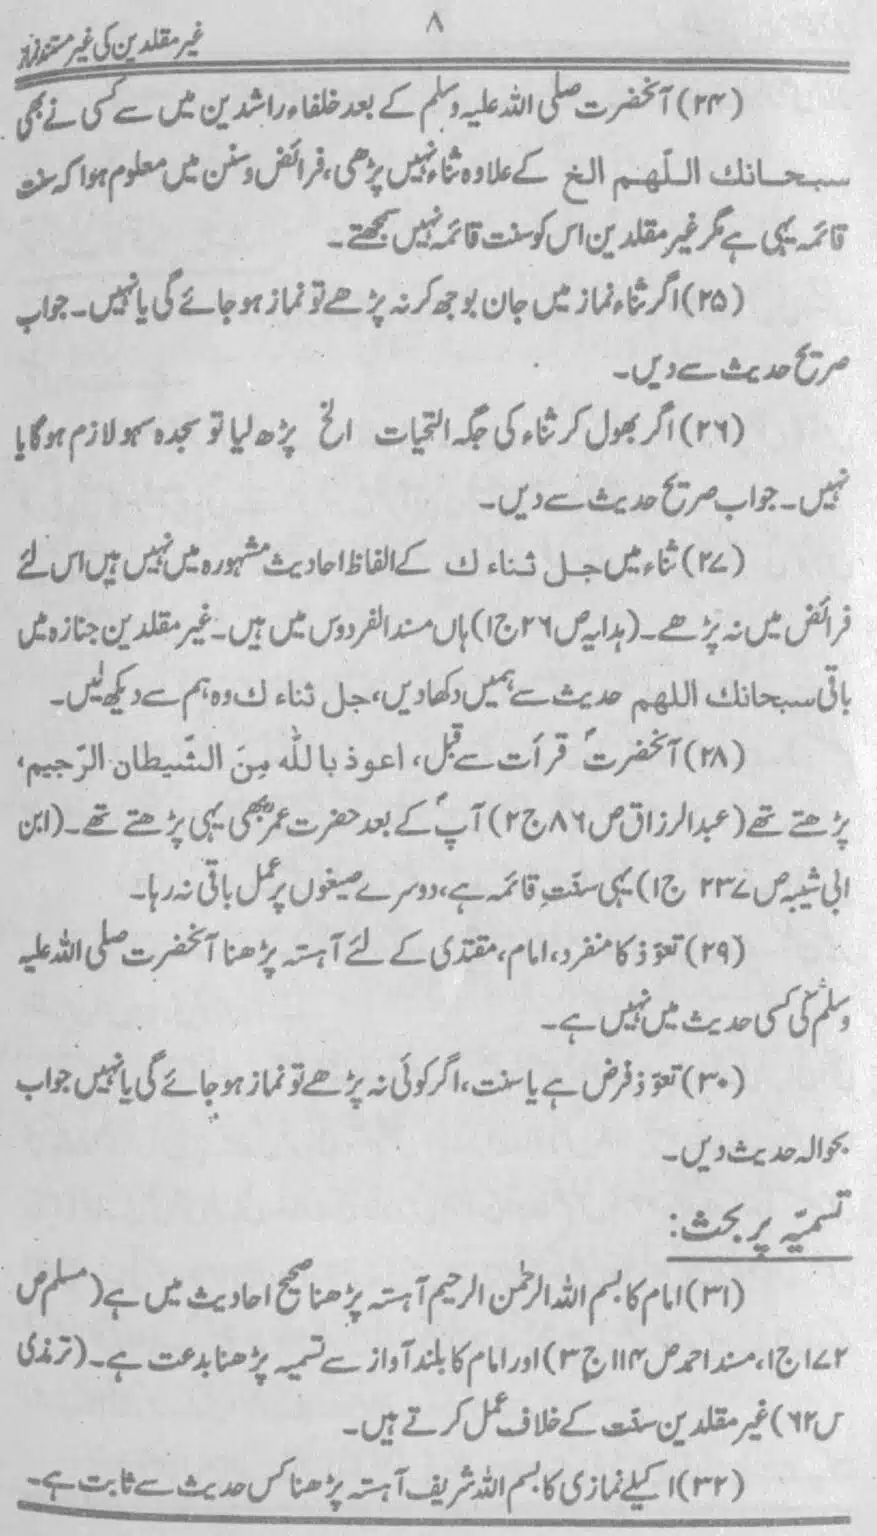 ۸
غیر مقلدین کی غیر مستند نماز
(۲۴) آنحضرت صلی اللہ علیہ وسلم کے بعد خلفاء راشدین میں سے کسی نے بھی
سبحانك اللّٰهم الخ کے علاوہ ثناء نہیں پڑھی، فرائض و سنن میں معلوم ہوا کہ سنت
قائمہ یہی ہے مگر غیر مقلدین اس کو سنت قائمہ نہیں سمجھتے۔
(۲۵) اگر ثناء نماز میں جان بوجھ کر نہ پڑھے تو نماز ہو جائے گی یا نہیں۔ جواب
صریح حدیث سے دیں۔
(۲۶) اگر بھول کر ثناء کی جگہ التحیات الخ پڑھ لیا تو سجدہ سہو لازم ہوگا یا
نہیں۔ جواب صریح حدیث سے دیں۔
(۲۷) ثناء میں جل ثناءك کے الفاظ احادیث مشہورہ میں نہیں ہیں اس لئے
فرائض میں نہ پڑھے۔ (ہدایہ ص ۲۶ ج ۱) ہاں مسند الفردوس میں ہیں۔ غیر مقلدین جنازہ میں
باقی سبحانك اللهم حدیث سے ہمیں دکھا دیں، جل ثناءك وہ ہم سے دیکھ لیں۔
(۲۸) آنحضرتؐ قرأت سے قبل، اعوذ باللّٰه مِنَ الشّیطان الرّجیم،
پڑھتے تھے (عبدالرزاق ص ۸۶ ج ۲) آپؐ کے بعد حضرت عمرؓ بھی یہی پڑھتے تھے۔ (ابن
ابی شیبہ ص ۲۳۷ ج ۱) یہی سنّتِ قائمہ ہے، دوسرے صیغوں پر عمل باقی نہ رہا۔
(۲۹) تعوّذ کا منفرد، امام، مقتدی کے لئے آہستہ پڑھنا آنحضرت صلی اللہ علیہ
وسلم کی کسی حدیث میں نہیں ہے۔
(۳۰) تعوّذ فرض ہے یا سنت، اگر کوئی نہ پڑھے تو نماز ہو جائے گی یا نہیں جواب
بحوالہ حدیث دیں۔
تسمیّہ پر بحث:
(۳۱) امام کا بسم اللہ الرحمٰن الرحیم آہستہ پڑھنا صحیح احادیث میں ہے (مسلم ص
۱۷۲ ج ۱، مسند احمد ص ۱۱۴ ج ۳) اور امام کا بلند آواز سے تسمیہ پڑھنا بدعت ہے۔ (ترمذی
ص ۶۲) غیر مقلدین سنّت کے خلاف عمل کرتے ہیں۔
(۳۲) اکیلے نمازی کا بسم اللہ شریف آہستہ پڑھنا کس حدیث سے ثابت ہے۔